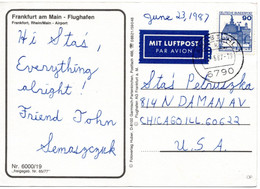 Frankfurt am Main - Flughafen
Frankfurt, Rhein/Main - Airport
June 23, 1987
Hi Staś,
Everything
alright!
Friend John
Semaszczuk
Nr. 6000/19
MIT LUFTPOST
PAR AVION
90
6790
Staś Petruszka
814 N DAMAN AV.
CHICAGO ILL. 60622
U.S.A.